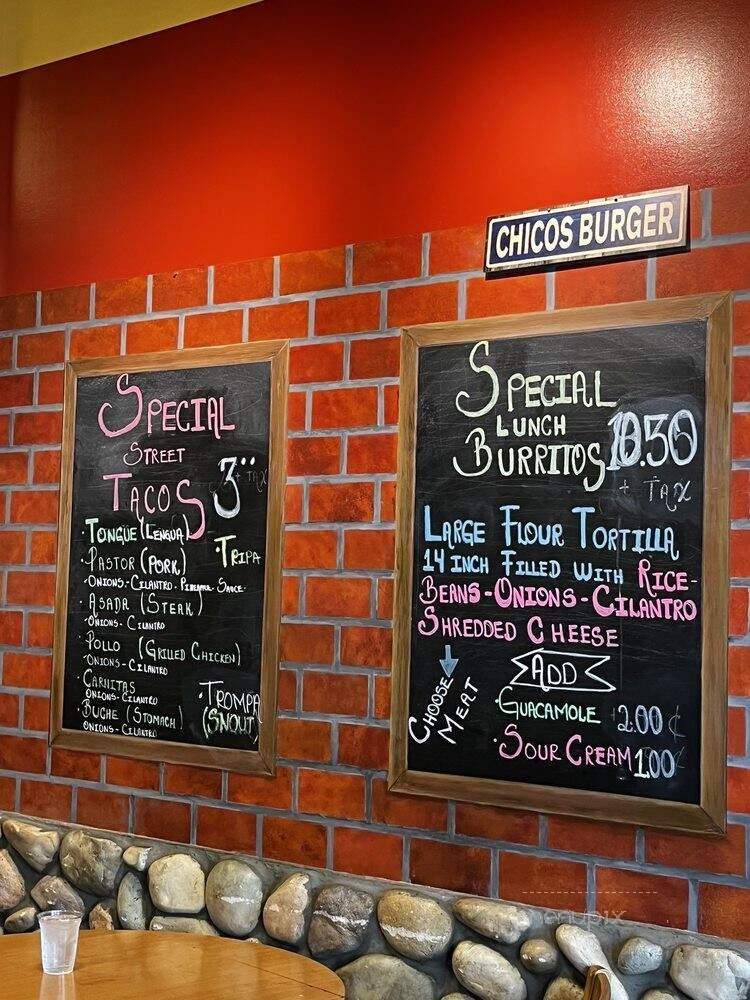 CHICOS BURGER
SPECIAL
STREET
TACOS
3 + TAX
·TONGUE (LENGUA)
·TRIPA
·PASTOR (PORK)
·ONIONS-CILANTRO-PINEAPPLE-SAUCE-
·ASADA (STEAK)
·ONIONS-CILANTRO
·POLLO (GRILLED CHICKEN)
·ONIONS-CILANTRO
·CARNITAS
ONIONS-CILANTRO
·BUCHE (STOMACH)
ONIONS-CILANTRO
·TROMPA
(SNOUT)
SPECIAL
LUNCH
BURRITOS
10.50
+ TAX
LARGE FLOUR TORTILLA
14 INCH FILLED WITH RICE-
BEANS-ONIONS-CILANTRO
SHREDDED CHEESE
CHOOSE
MEAT
ADD
·GUACAMOLE 2.00 ¢
·SOUR CREAM 1.00 ¢
menupix